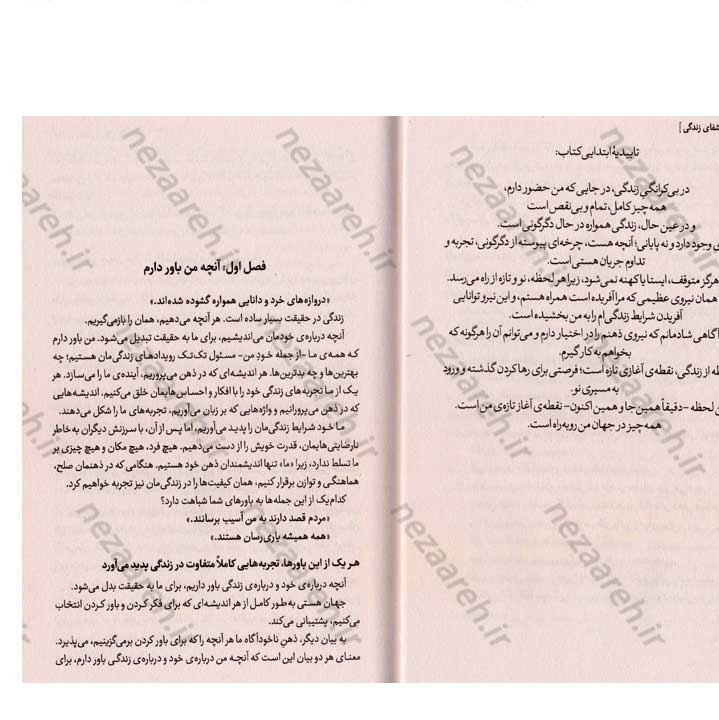 شفای زندگی]
تاییدیهٔ ابتدایی کتاب:
در بی‌کرانگیِ زندگی، در جایی که من حضور دارم،
همه‌چیز کامل، تمام و بی‌نقص است
و در عین حال، زندگی همواره در حال دگرگونی است.
وجود دارد و نه پایانی؛ آنچه هست، چرخه‌ای پیوسته از دگرگونی، تجربه و
تداوم جریان هستی است.
هرگز متوقف، ایستا یا کهنه نمی‌شود، زیرا هر لحظه، نو و تازه از راه می‌رسد.
همان نیروی عظیمی که مرا آفریده است همراه هستم، و این نیرو توانایی
آفریدن شرایط زندگی‌ام را به من بخشیده است.
آگاهی شادمانم که نیروی ذهنم را در اختیار دارم و می‌توانم آن را هرگونه که
بخواهم به کار گیرم.
از زندگی، نقطه‌ی آغازی تازه است؛ فرصتی برای رها کردن گذشته و ورود
به مسیری نو.
لحظه -دقیقاً همین جا و همین اکنون- نقطه‌ی آغاز تازه‌ی من است.
همه‌چیز در جهان من روبه‌راه است.
فصل اول: آنچه من باور دارم
«دروازه‌های خرد و دانایی همواره گشوده شده‌اند.»
زندگی در حقیقت بسیار ساده است. هر آنچه می‌دهیم، همان را بازمی‌گیریم.
آنچه درباره‌ی خودمان می‌اندیشیم، برای ما به حقیقت تبدیل می‌شود. من باور دارم
که همه‌ی ما -از جمله خودِ من- مسئول تک‌تک رویدادهای زندگی‌مان هستیم؛ چه
بهترین‌ها و چه بدترین‌ها. هر اندیشه‌ای که در ذهن می‌پروریم، آینده‌ی ما را می‌سازد. هر
یک از ما تجربه‌های زندگی خود را با افکار و احساس‌هایمان خلق می‌کنیم. اندیشه‌هایی
که در ذهن می‌پرورانیم و واژه‌هایی که بر زبان می‌آوریم، تجربه‌های ما را شکل می‌دهند.
ما خود شرایط زندگی‌مان را پدید می‌آوریم، اما پس از آن، با سرزنش دیگران به خاطر
نارضایتی‌هایمان، قدرت خویش را از دست می‌دهیم. هیچ فرد، هیچ مکان و هیچ چیزی بر
ما تسلط ندارد، زیرا «ما» تنها اندیشمندان ذهن خود هستیم. هنگامی که در ذهنمان صلح،
هماهنگی و توازن برقرار کنیم، همان کیفیت‌ها را در زندگی‌مان نیز تجربه خواهیم کرد.
کدام‌یک از این جمله‌ها به باورهای شما شباهت دارد؟
«مردم قصد دارند به من آسیب برسانند.»
«همه همیشه یاری‌رسان هستند.»
هر یک از این باورها، تجربه‌هایی کاملاً متفاوت در زندگی پدید می‌آورد
آنچه درباره‌ی خود و درباره‌ی زندگی باور داریم، برای ما به حقیقت بدل می‌شود.
جهان هستی به‌طور کامل از هر اندیشه‌ای که برای فکر کردن و باور کردن انتخاب
می‌کنیم، پشتیبانی می‌کند.
به بیان دیگر، ذهنِ ناخودآگاه ما هر آنچه را که برای باور کردن برمی‌گزینیم، می‌پذیرد.
معنای هر دو بیان این است که آنچه من درباره‌ی خود و درباره‌ی زندگی باور دارم، برای
nezaareh.ir
nezaareh.ir
nezaareh.ir
nezaareh.ir
nezaareh.ir
nezaareh.ir
nezaareh.ir
nezaareh.ir